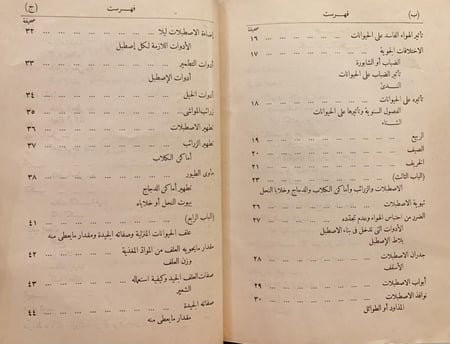 (ب)
فهرست
صحيفة
تأثير الهواء الفاسد على الحيوانات ... ... ... ... ١٦
الاختلافات الجوية ... ... ... ... ... ١٧
الضباب أو الشابورة
تأثير الضباب على الحيوانات
الندى
تأثيره على الحيوانات ... ... ... ... ... ١٨
الفصول السنوية وتأثيرها على الحيوانات
الشتاء
الربيع ... ... ... ... ... ... ١٩
الصيف ... ... ... ... ... ... ٢٠
الخريف ... ... ... ... ... ... ٢١
(الباب الثالث) ... ... ... ... ... ... ٢٣
الاصطبلات والزرائب وأماكن الكلاب والدجاج وخلايا النحل
تهوية الاصطبلات ... ... ... ... ... ٢٦
الضرر من احتباس الهواء وعدم تجدده ... ... ... ٢٧
الأدوات التى تدخل فى بناء الاصطبل
بلاط الإصطبل
جدران الاصطبلات ... ... ... ... ... ٢٨
الأسقف
أبواب الاصطبلات ... ... ... ... ... ٢٩
نوافذ الاصطبلات ... ... ... ... ... ٣٠
المذاود أو الطوائل
فهرست
(ج)
صحيفة
إضاءة الاصطبلات ليلا ... ... ... ... ... ٣٢
الأدوات اللازمة لكل إصطبل
أدوات التطمير ... ... ... ... ... ... ٣٣
أدوات الإصطبل
أدوات الخيل ... ... ... ... ... ... ٣٤
زرائب المواشى ... ... ... ... ... ... ٣٥
تطهير الاصطبلات ... ... ... ... ... ٣٦
تطهير الزرائب ... ... ... ... ... ... ٣٧
أماكن الكلاب
مأوى الطيور ... ... ... ... ... ... ٣٨
تطهير أماكن الدجاج
بيوت النحل أو خلاياه
(الباب الرابع) ... ... ... ... ... ... ٤١
علف الحيوانات المنزلية وصفاته الجيدة ومقدار مايعطى منه
مقدار مايحويه العلف من المواد المغذية ... ... ... ٤٢
وزن العلف
صفات العلف الجيد وكيفية استعماله ... ... ... ٤٣
الشعير
صفاته الجيدة ... ... ... ... ... ... ٤٤
مقدار مايعطى منه